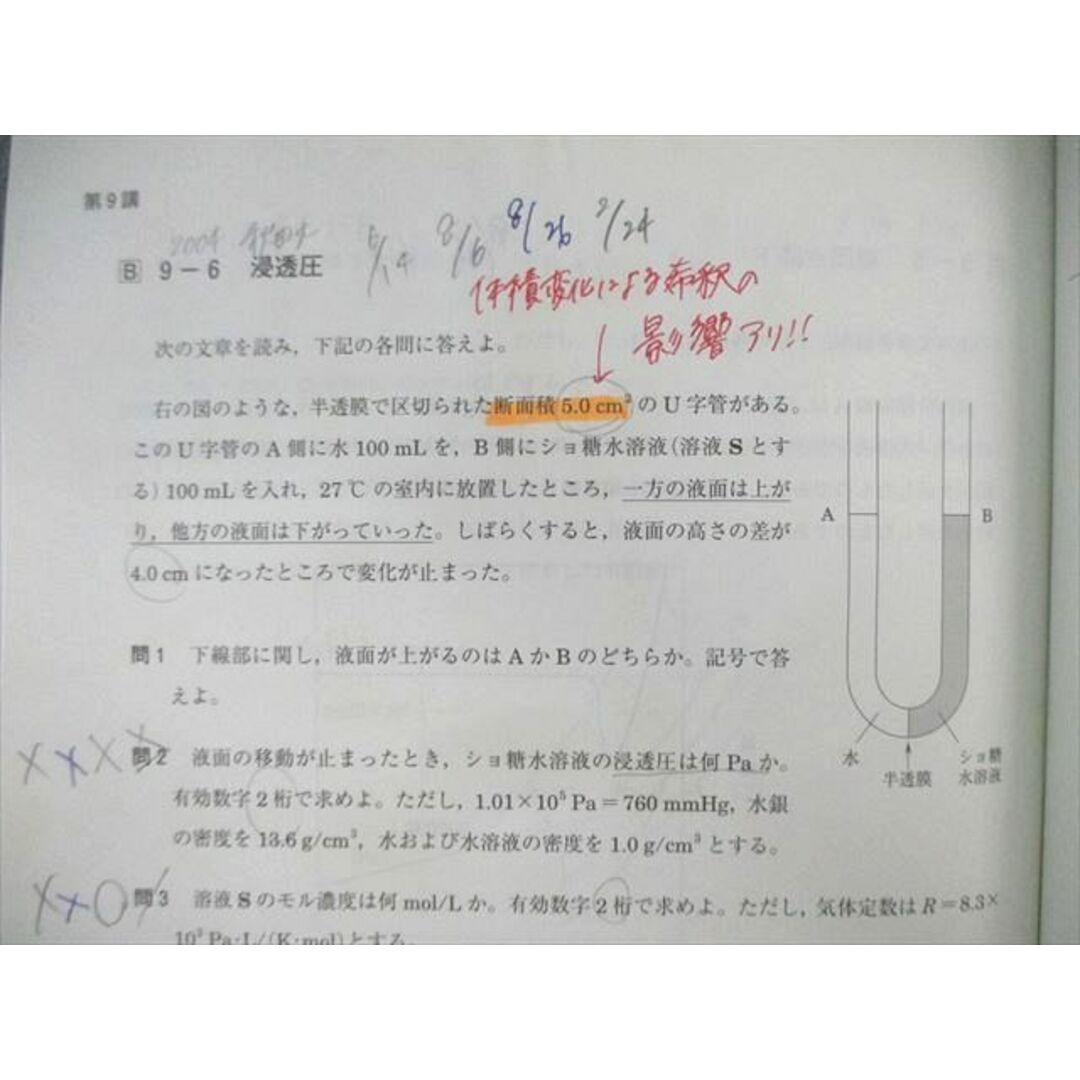 第9講
2004 8/6 8/26 2/24
B 9-6 浸透圧
体積変化による希釈の
影響アリ!!
次の文章を読み，下記の各問に答えよ。
右の図のような，半透膜で区切られた断面積 5.0 cm² の U 字管がある。
この U 字管の A 側に水 100 mL を，B 側にショ糖水溶液(溶液 S とす
る) 100 mL を入れ，27℃ の室内に放置したところ，一方の液面は上が
り，他方の液面は下がっていった。しばらくすると，液面の高さの差が
4.0 cm になったところで変化が止まった。
A
B
水
半透膜
ショ糖
水溶液
問1 下線部に関し，液面が上がるのは A か B のどちらか。記号で答
えよ。
××××
問2 液面の移動が止まったとき，ショ糖水溶液の浸透圧は何 Pa か。
有効数字 2 桁で求めよ。ただし，1.01×10⁵ Pa＝760 mmHg，水銀
の密度を 13.6 g/cm³，水および水溶液の密度を 1.0 g/cm³ とする。
××○
問3 溶液 S のモル濃度は何 mol/L か。有効数字 2 桁で求めよ。ただし，気体定数は R＝8.3×
10³ Pa·L/(K·mol) とする。